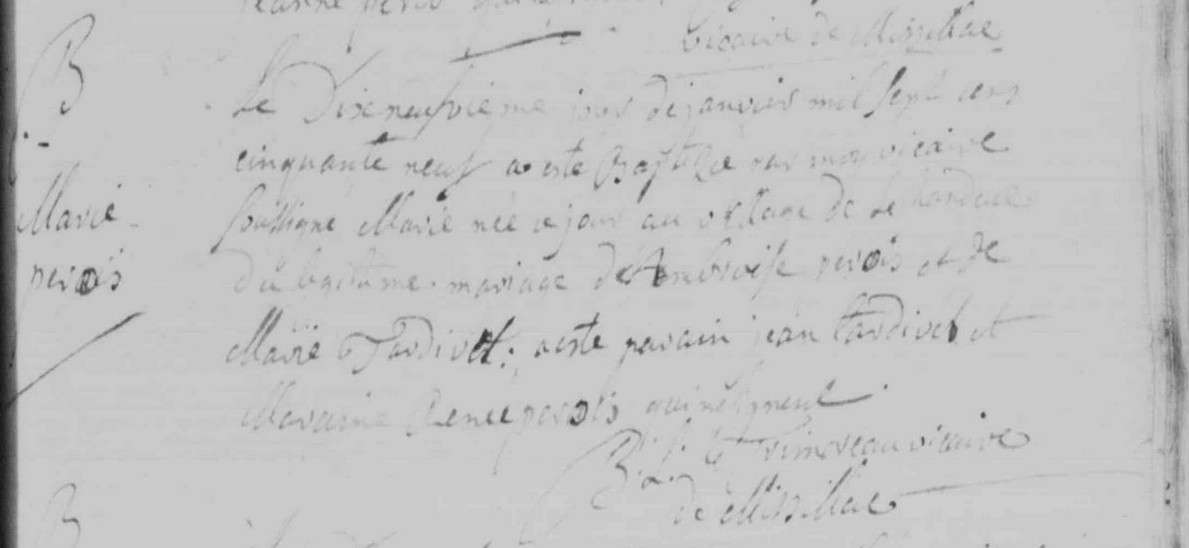 jeanne perois
vicaire de Missillac
B
Le Dixneufvieme jour de janvier mil sept cens
cinquante neuf a este Baptizee par moy vicaire
Marie
Soussigné Marie née ce jour au village de
perois
Du legitime mariage de Ambroise perois et de
Marie Tardivel; a este parain jean tardivel et
Maraine Renee perois qui ne signent
B. L. vicaire
de Missillac
B